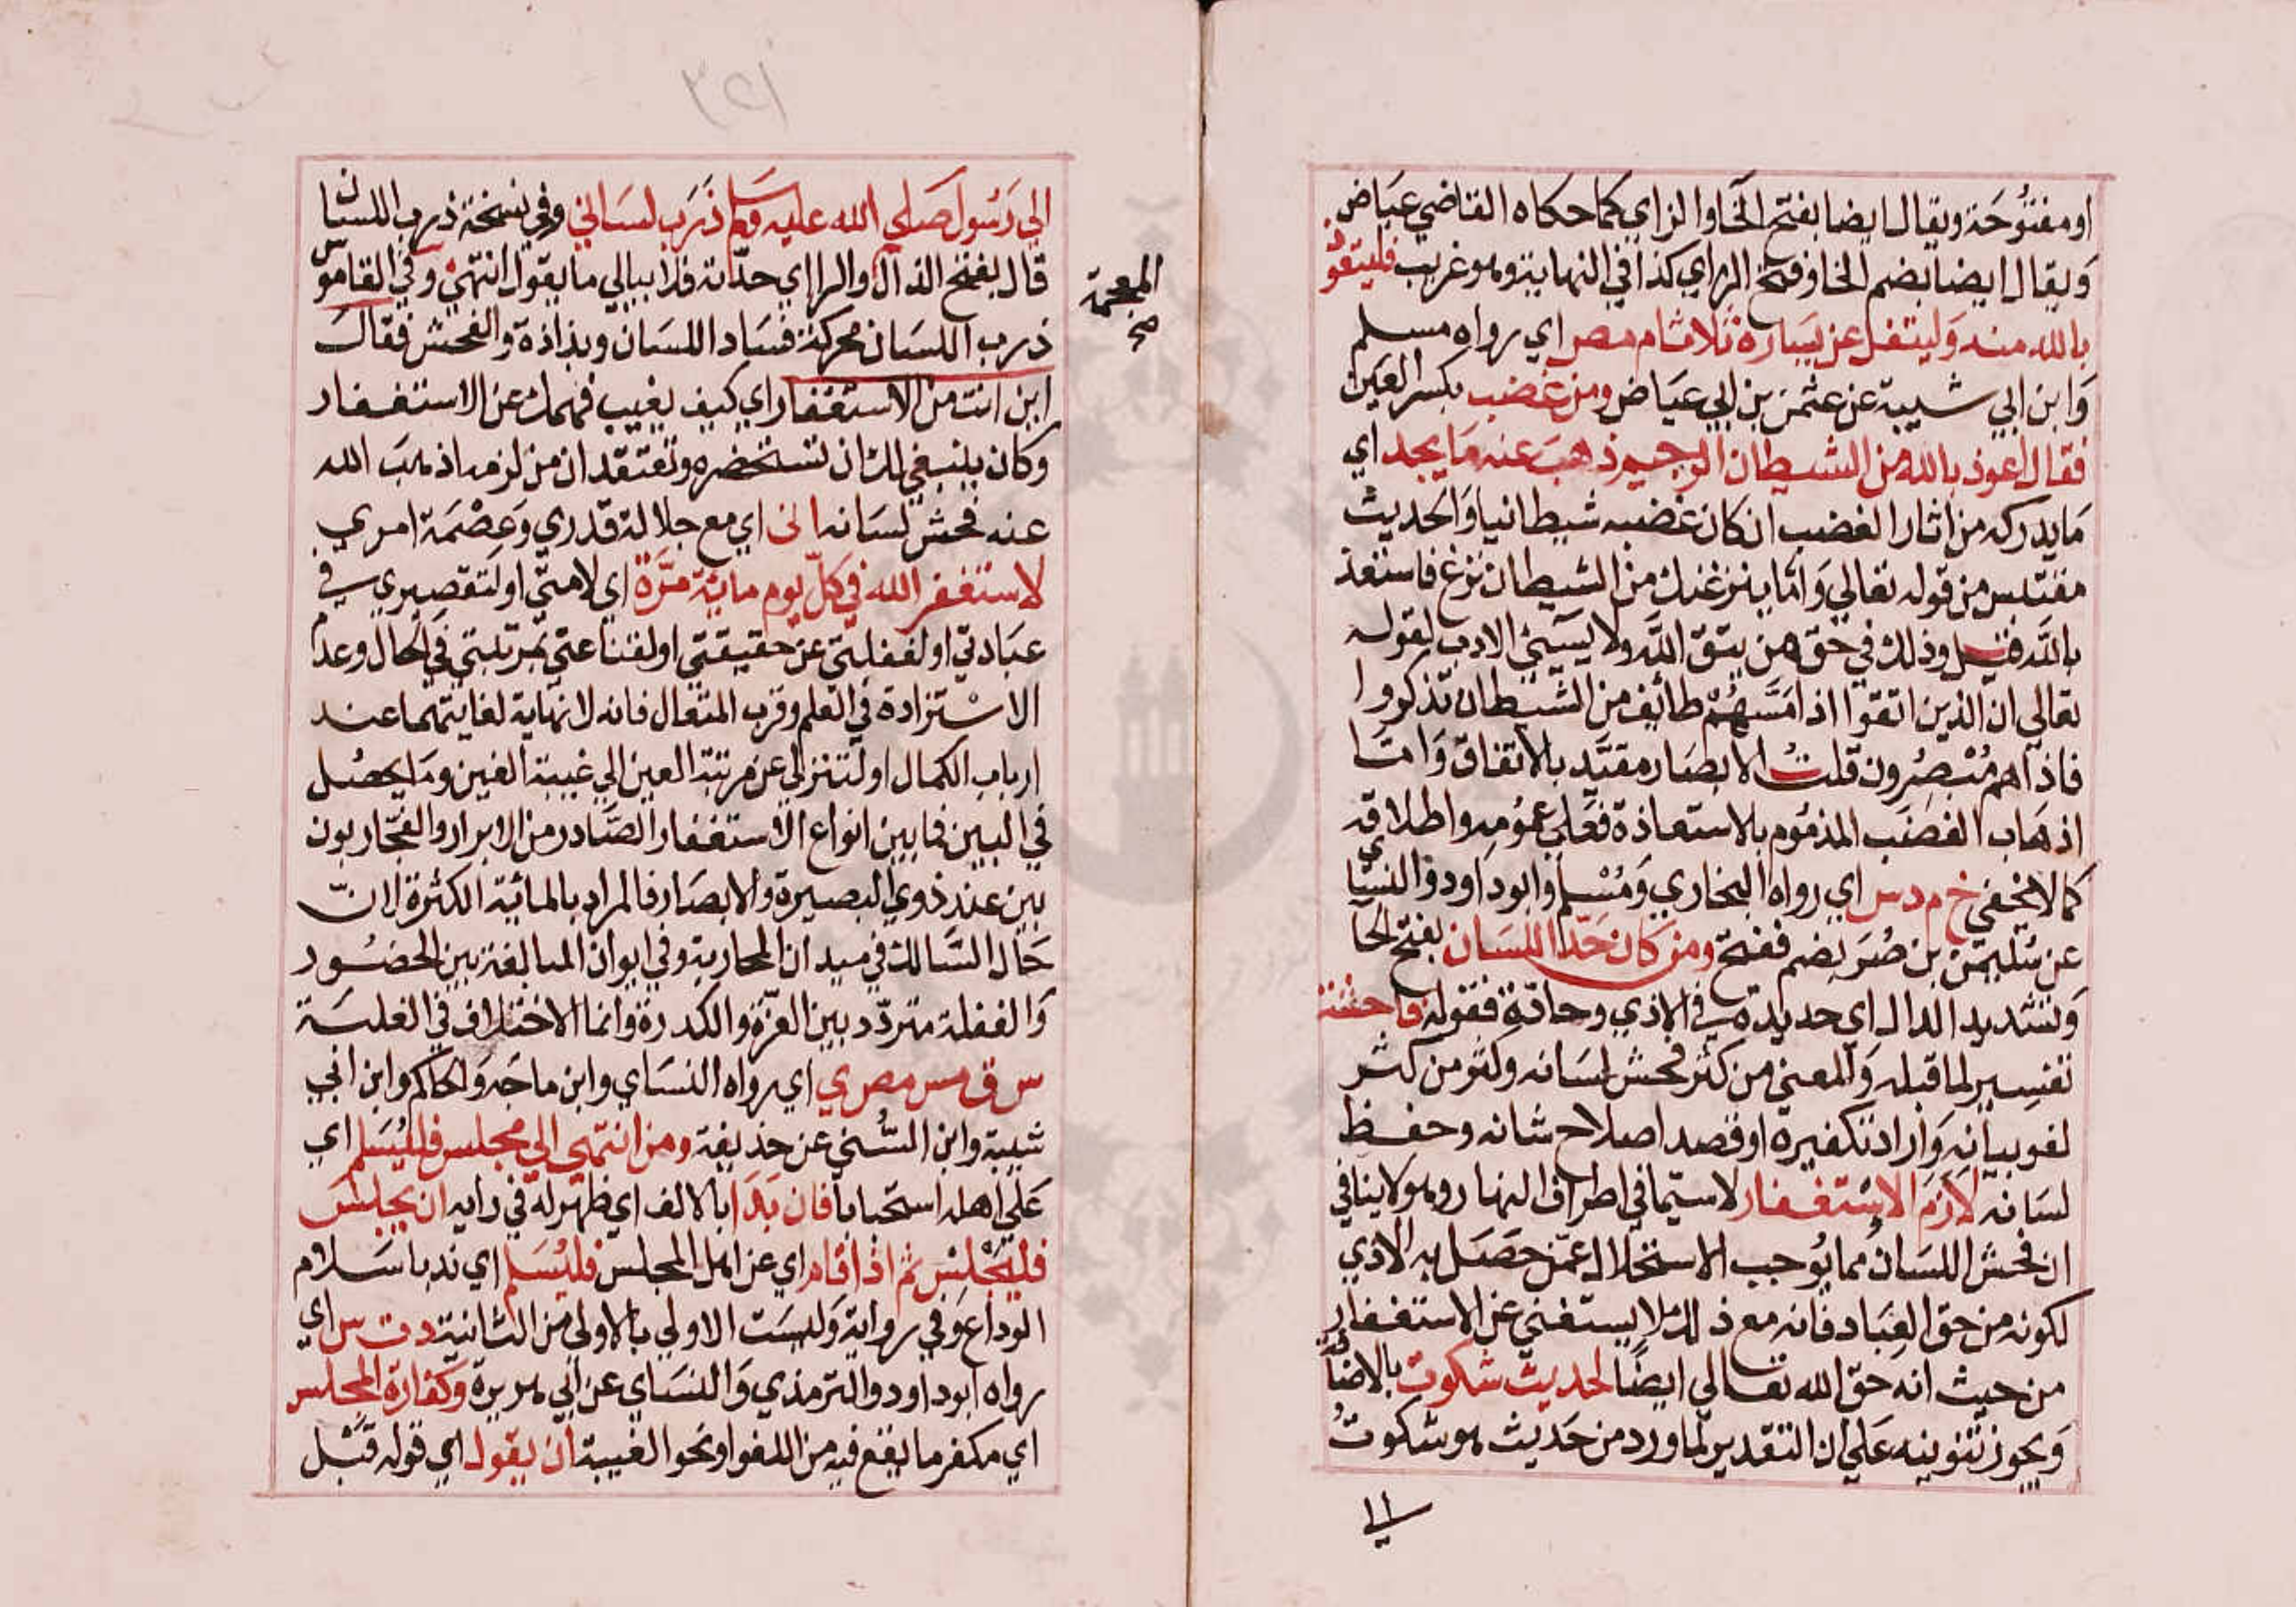 او مفتوحة ويقال ايضا بفتح الخا والزاي كما حكاه القاضي عياض
ويقال ايضا بضم الخا وفتح الزاي كذا في النهاية وهو غريب فليتعوذ
بالله منه وليتفل عن يساره ثلاثا م مص اي رواه مسلم
وابن ابي شيبة عن عثمن بن ابي عياض ومن غضب بكسر العين
فقال اعوذ بالله من الشيطان الرجيم ذهب عنه ما يجد اي
ما يدركه من اثار الغضب ان كان غضبه شيطانيا والحديث
مقتبس من قوله تعالي واما ينزغنك من الشيطان نزغ فاستعذ
بالله قيل وذلك في حق من يتق الله ولا يسيئ الادب لقوله
تعالي ان الذين اتقوا اذا مسهم طائف من الشيطان تذكروا
فاذا هم مبصرون قلت الابصار مقيد بالاتفاق واما
اذهاب الغضب المذموم بالاستعاذة فعلي عمومه واطلاقه
كما لا يخفي خ م د س اي رواه البخاري ومسلم وابو داود والنسائي
عن سليمن بن صرد بضم ففتح ومن كان حد اللسان بفتح الحا
وتشديد الدال اي حديده في الاذي وحادّه فقوله فاحشته
تفسير لما قبله والمعني من كثر فحش لسانه ولثو من كثر
لغو بيانه واراد تكفيره او قصد اصلاح شانه وحفظ
لسانه لازم الاستغفار لا سيما في اطراف النهار وهو لا ينافي
ان فحش اللسان مما يوجب الاستحلال عمن حصل به الاذي
لكونه من حق العباد فانه مع ذلك لا يستغني عن الاستغفار
من حيث انه حق الله تعالي ايضا لحديث شكوت بالاضافة
ويجوز تنوينه علي ان التقدير لما ورد من حديث هو شكوت
الي
٣٢١
الي رسول صلي الله عليه وسلم ذرب لساني وفي نسخة ذرب اللسان
قال بفتح الذال والرا اي حدّته فلا يبالي ما يقول انتهي وفي القاموس
المعجمة
صح
ذرب اللسان محركة فساد اللسان وبذاذة والفحش فقال
اين انت من الاستغفار اي كيف يغيب فهمك عن الاستغفار
وكان ينبغي لك ان تستحضره وتعتقد ان من لزمه اذهب الله
عنه فحش لسانه اني اي مع جلالة قدري وعصمة امري
لاستغفر الله في كل يوم مائة مرّة اي لامتي او لتقصيري في
عبادتي او لغفلتي عن حقيقتي او لقناعتي بمرتبتي في الحال وعدم
الاستزادة في العلم وقرب المتعال فانه لا نهاية لغايتهما عند
ارباب الكمال او لتنزلي عن مرتبة العين الي غيبة الغين وما يحصل
في البين فما بين انواع الاستغفار الصادر من الابرار والفجّار بون
بين عند ذوي البصيرة والابصار فالمراد بالمائة الكثرة لانّ
حال السالك في ميدان المحاربة وفي ايوان المبالغة بين الحضور
والغفلة متردّد بين العزة والكدرة وانما الاختلاف في الغلبة
س ق مس مص ي اي رواه النسائ وابن ماجه والحاكم وابن ابي
شيبة وابن السُّني عن حذيفة ومن انتهي الي مجلس فليُسلم اي
علي اهله استحبابا فان بدا بالالف اي ظهر له في رايه ان يجلس
فليجلس ثم اذا قام اي عن اهل المجلس فليُسلم اي ندبا سلام
الوداع وفي رواية وليست الاولي بالاولي من الثانية د ت س اي
رواه ابو داود والترمذي والنساي عن ابي هريرة وكفارة المجلس
اي مكفر ما يقع فيه من اللغو او نحو الغيبة ان يقول اي قوله قبل